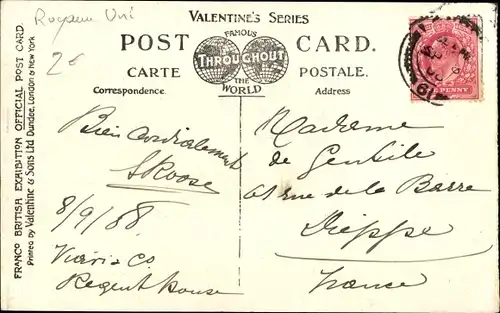 Royaum Uni
2€
VALENTINE'S SERIES
FAMOUS
POST CARD.
THROUGHOUT
CARTE POSTALE.
THE
WORLD
Correspondence. Address
FRANCO BRITISH EXHIBITION OFFICIAL POST CARD.
Printed by Valentine & Sons Ltd Dundee, London & New York
PENNY
Bien cordialement
8/9/08
& Co
Regent House
Madame
de Gentile
61 rue de la Barre
Dieppe
France